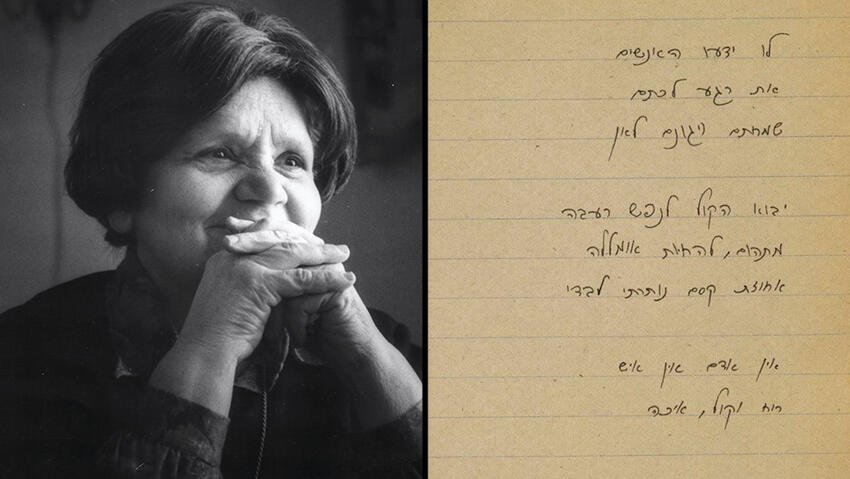 לו ידעו האנשים
את רגע לכתם
שמחתם ויגונם לאן
יבוא הקול לנפש רעבה
מתהום, להחיות אומללה
אחוזת קסם נותרתי לבדי
אין אדם אין איש
רוח וקול, איכה